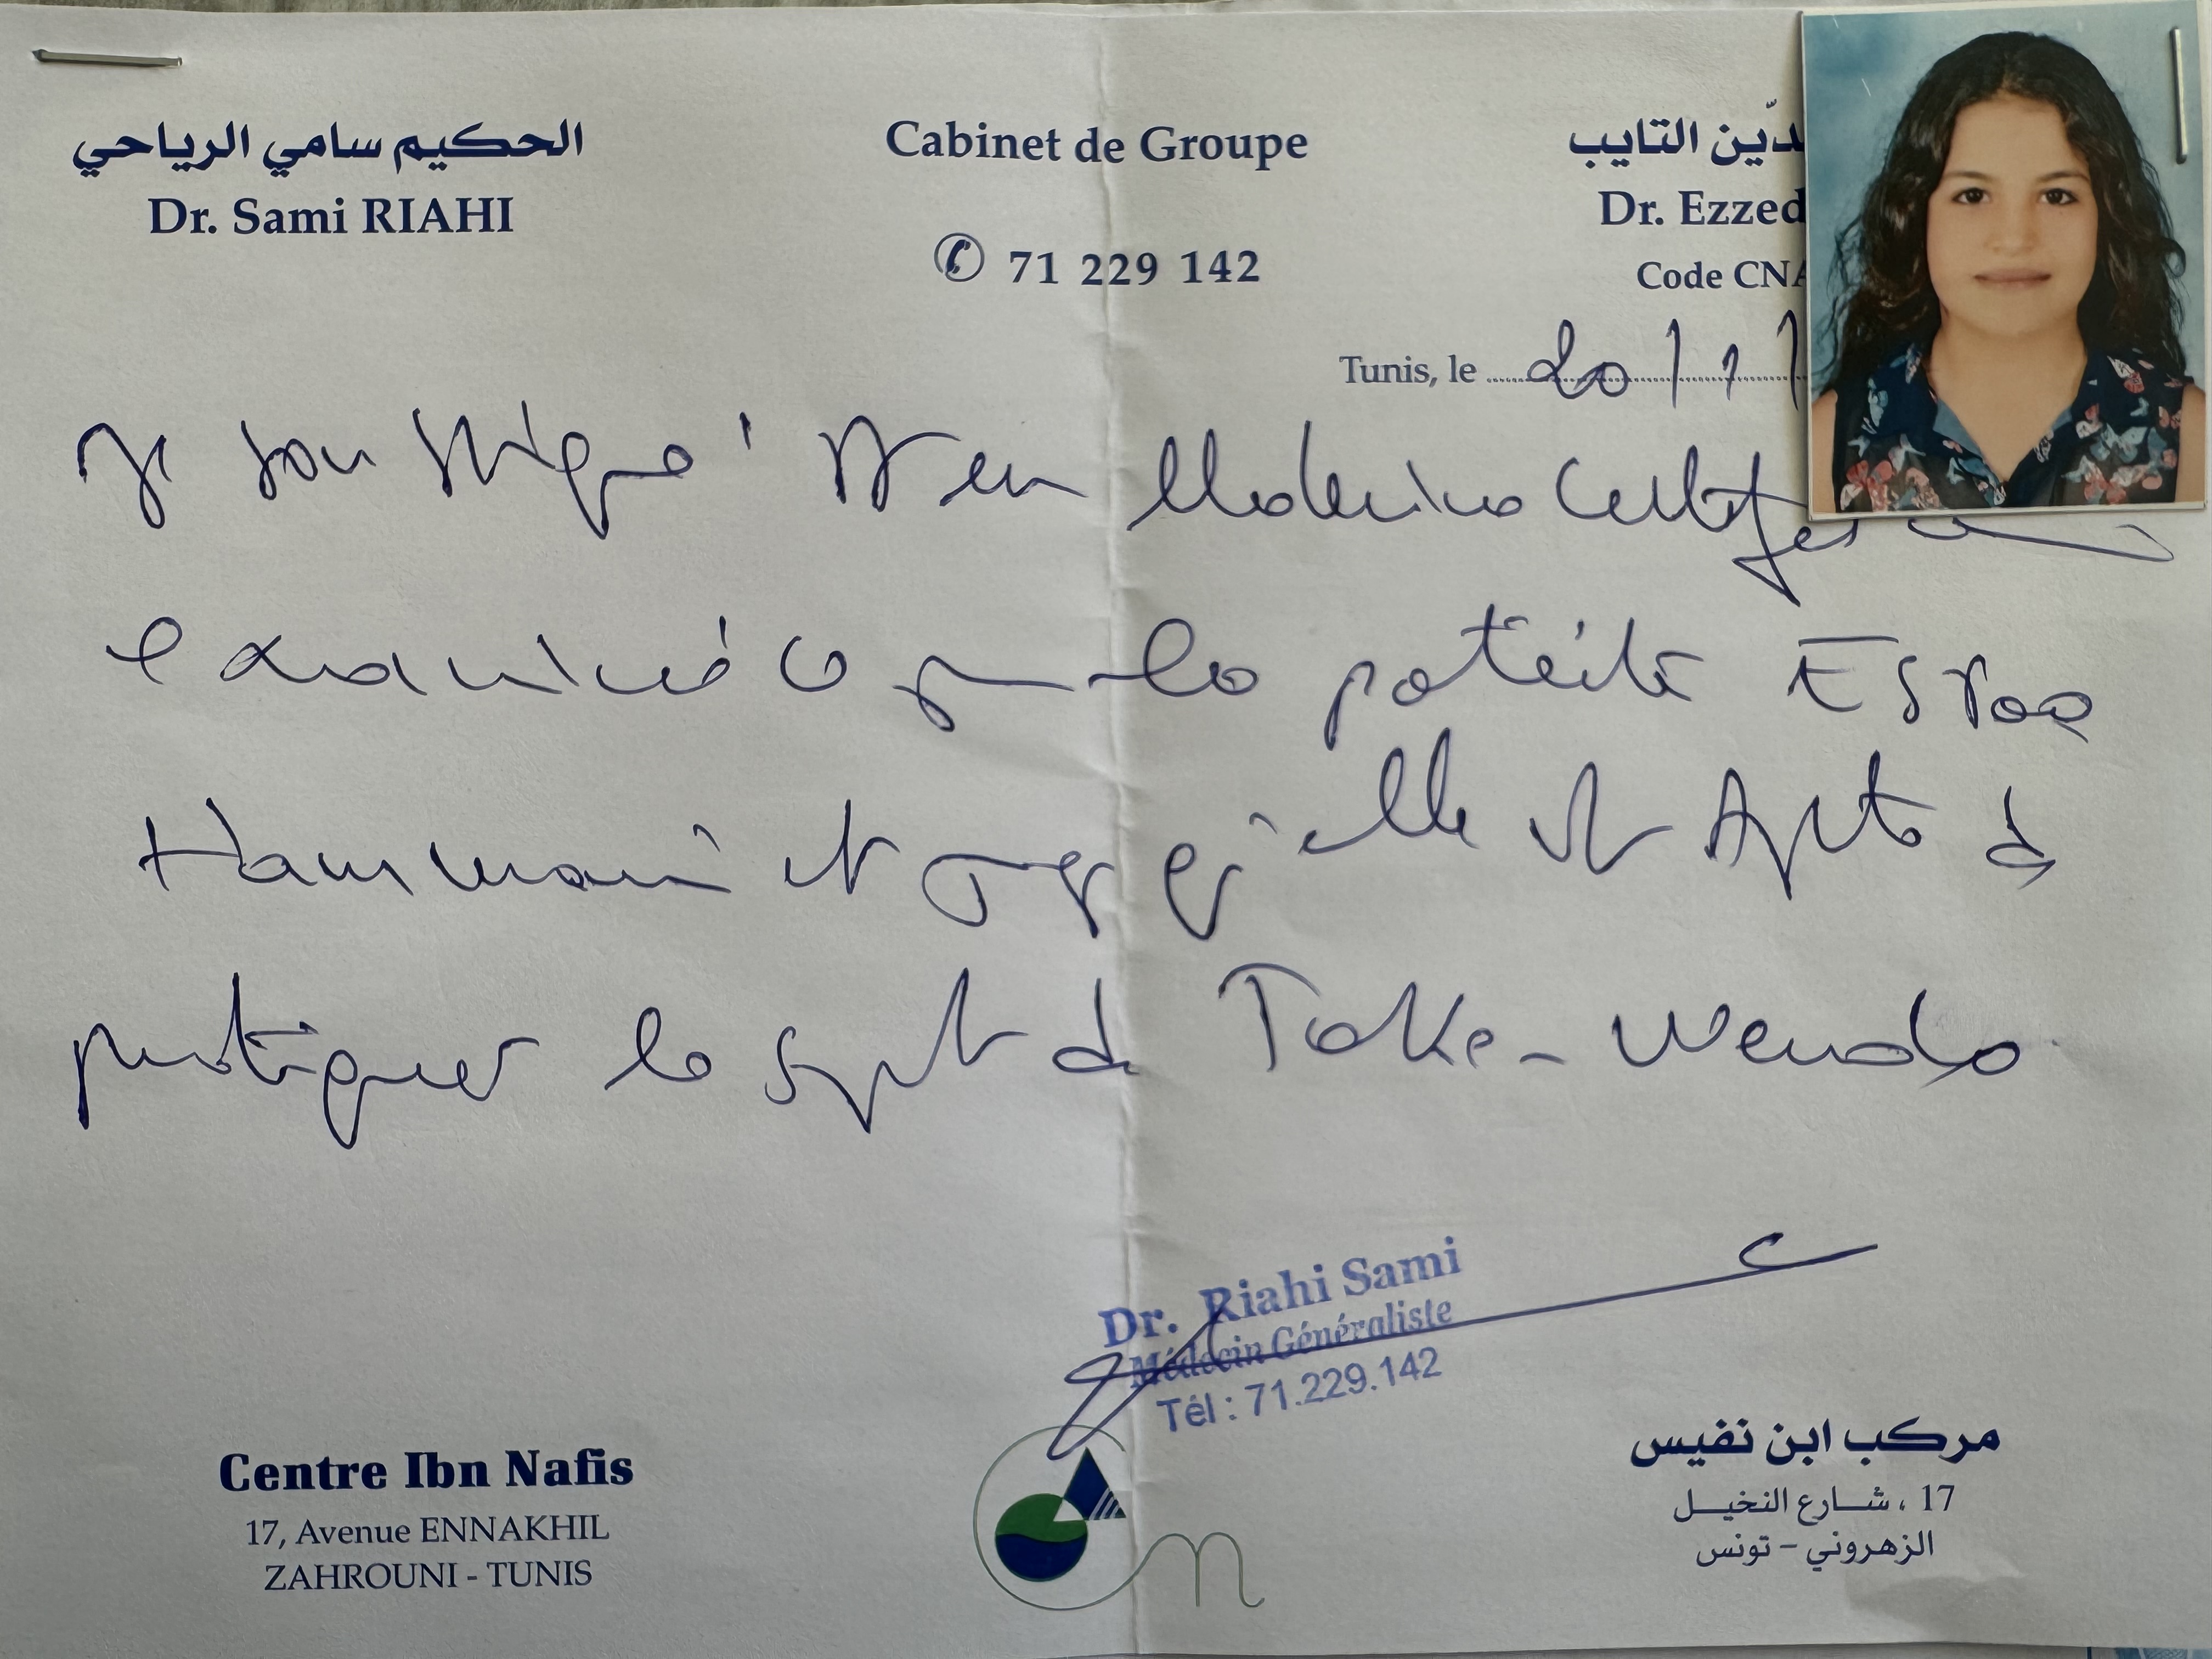 الحكيم سامي الرياحي
Dr. Sami RIAHI
Cabinet de Groupe
✆ 71 229 142
ـدّين التايب
Dr. Ezzed
Code CNA
Tunis, le 20/1/
Je soussigné Dr en Médecine certifie
examiné ce jour la patiente Esraa
Hammami et qu'elle est Apte à
pratiquer le sport de Take-wendo
Dr. Riahi Sami
Médecin Généraliste
Tél : 71.229.142
Centre Ibn Nafis
17, Avenue ENNAKHIL
ZAHROUNI - TUNIS
مركب ابن نفيس
17 ، شارع النخيل
الزهروني - تونس